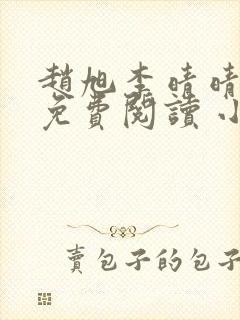 趙旭李晴晴
免費閱讀小
賣包子的包子